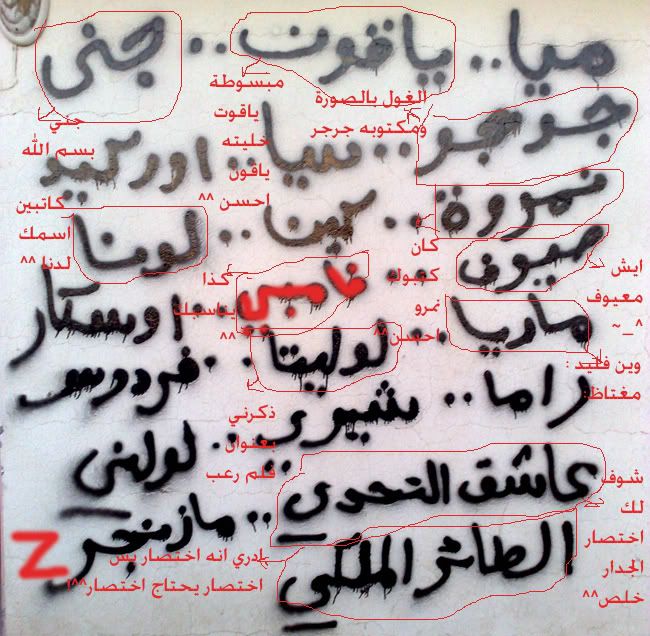 ميا.. ياقون.. جنى
جوجو.. سيا.. اوركيد
نمروة.. كينا.. لونا
صيوف.. خامبي.. اوسكار
ماريا.. لوليتا.. فردوس
راما.. شيري..
عاشق التحدي.. مازنجر Z
الطائر الملكي
الغول بالصورة
ومكتوبه جرجر
مبسوطة
ياقوت
خليته
ياقون
احسن ^^
جني
بسم الله
كاتبين
اسمك
لدنا ^^
كان
كتبوك
نمرو
احسن ^^
كذا
يناسبك
^^
ايش
معيوف
~_^
وين فليد :
مغتاظ:
ذكرني
بعنوان
فلم رعب
شوف
لك
اختصار
الجدار
خلص^^
يدري انه اختصار بس
اختصار يحتاج اختصار^^ا